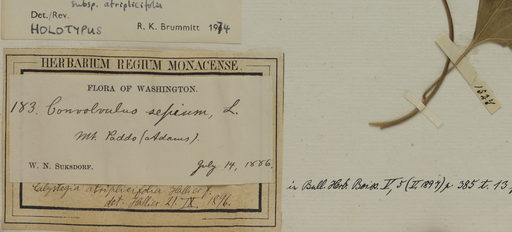 subsp. atriplicifolia
Det./Rev.
HOLOTYPUS R. K. Brummitt 1974
HERBARIUM REGIUM MONACENSE.
FLORA OF WASHINGTON.
183. Convolvulus sepium, L.
Mt. Paddo (Adams).
W. N. SUKSDORF. July 14, 1886.
Calystegia atriplicifolia Hallier f.
det. Hallier 21. IX. 1896.
in Bull. Herb. Boiss. V, 5 (V 1897) p. 385 t. 13